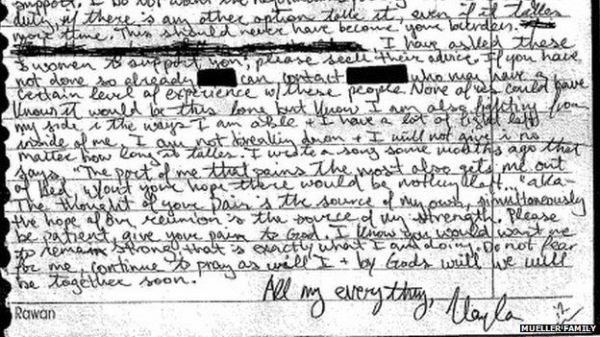 support. I do not want the
duty, if there is any other option take it, even if it takes
more time. This should never have become your burden.
I have asked these
women to support you; please seek their advice. If you have
not done so already can contact who may have a
certain level of experience w/ these people. None of us could have
known it would be this long but know I am also fighting from
my side in the ways I am able + I have a lot of fight left
inside of me. I am not breaking down + I will not give in no
matter how long it takes. I wrote a song some months ago that
says, "The part of me that pains the most also gets me out
of bed, w/out your hope there would be nothing left..." aka-
The thought of your pain is the source of my own, simultaneously
the hope of our reunion is the source of my strength. Please
be patient, give your pain to God. I know you would want me
to remain strong. that is exactly what I am doing. Do not fear
for me, continue to pray as will I + by Gods will we will
be together soon.
All my everything, Kayla
Rawan
MUELLER FAMILY